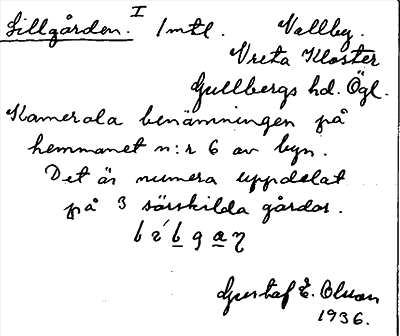 Lillgården. I 1 mtl. Vallby.
Vreta Kloster
Gullbergs hd. Ögl.
Kamerala benämningen på
hemmanet n:r 6 av byn.
Det är numera uppdelat
på 3 särskilda gårdar.
Gustaf E. Olson
1936.